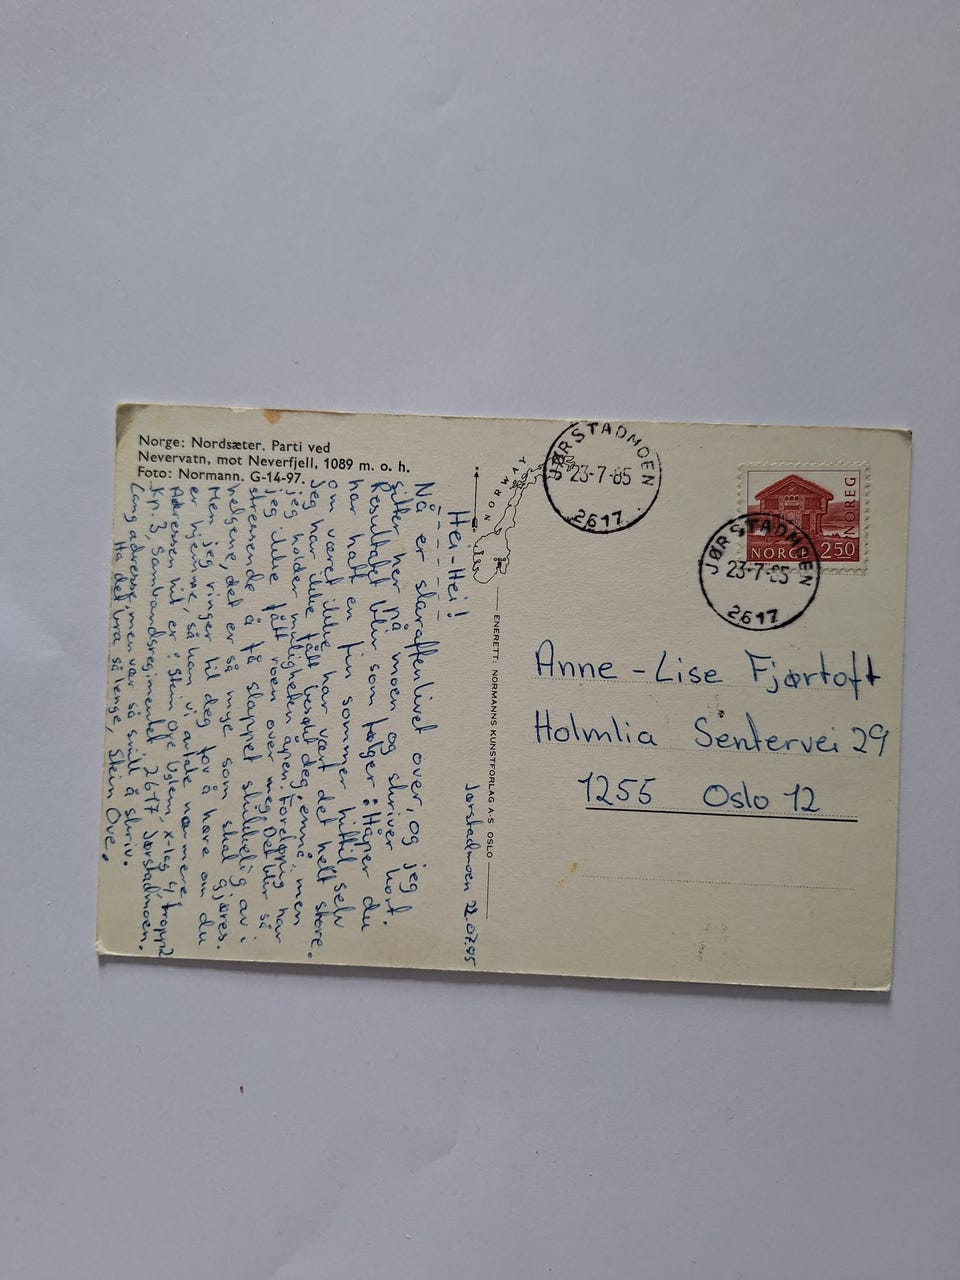 Norge: Nordsæter. Parti ved
Nevervatn, mot Neverfjell, 1089 m. o. h.
Foto: Normann. G-14-97.
Jørstadmoen 22.07.85
Hei-Hei!
Nå er slaraffenlivet over, og jeg
sitter her på moen og skriver kort.
Resultatet blir som følger: Håper du
har hatt en fin sommer hittil selv
om været ikke har vært det helt store.
Jeg har ikke fått besøkt deg ennå, men
jeg holder muligheten åpen. Foreløpig har
jeg ikke fått roen over meg. Det blir så
stressende å få slappet skikkelig av i
helgene, det er så mye som skal gjøres.
Men jeg ringer til deg for å høre om du
er hjemme, så kan vi avtale nærmere.
Adressen hit er: Stein Ove x-lag 4, tropp 2
Kp. 3, Sambandsregimentet 2617 Jørstadmoen.
Lang adresse, men vær så snill å skriv.
Ha det bra så lenge, Stein Ove.
NORWAY
ENERETT: NORMANNS KUNSTFORLAG A-S OSLO
JØRSTADMOEN
23-7-85
2617
NOREG
NORGE 250
JØRSTADMOEN
23-7-85
2617
Anne-Lise Fjørtoft
Holmlia Sentervei 29
1255 Oslo 12